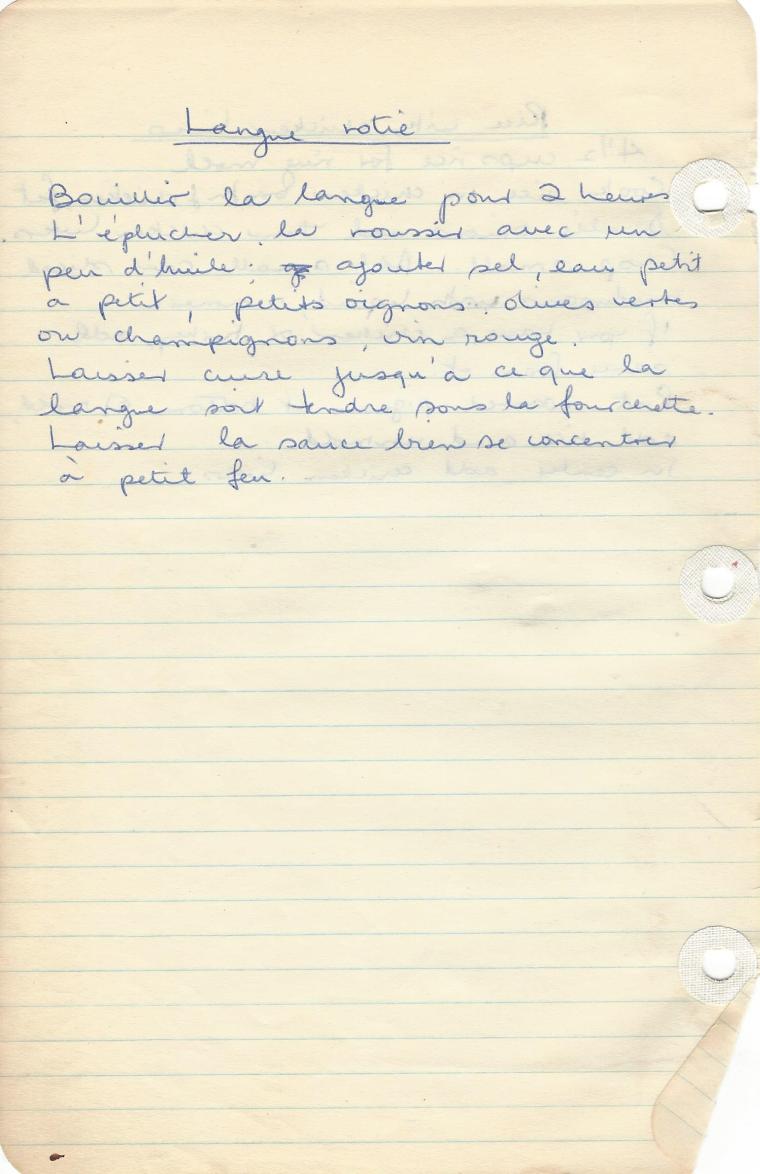 Langue rotie
Bouillir la langue pour 2 heures
L'éplucher. la roussir avec un
peu d'huile. ajouter sel, eau petit
a petit, petits oignons. olives vertes
ou champignons, vin rouge.
Laisser cuire jusqu'à ce que la
langue soit tendre sous la fourchette.
Laisser la sauce bien se concentrer
à petit feu.